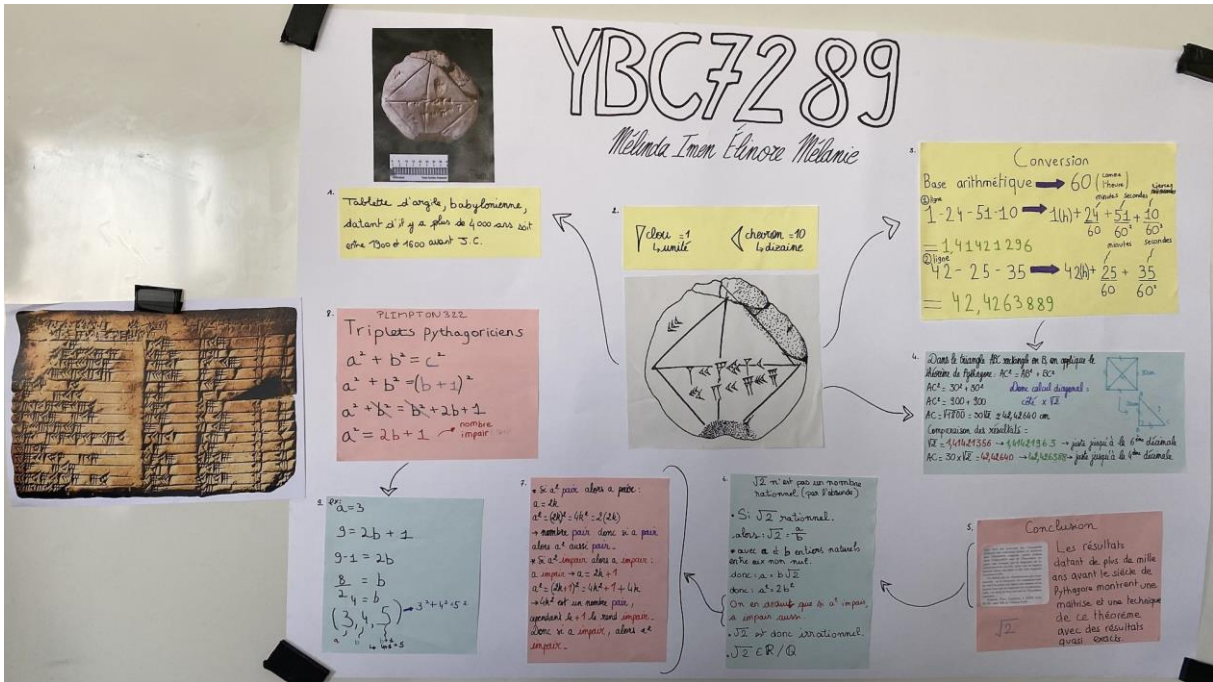 YBC7289
Mélinda Imen Élinore Mélanie
1.
Tablette d'argile, babylonienne,
datant d'il y a plus de 4000 ans soit
entre 1900 et 1600 avant J.C.
2.
clou = 1
↳ unité
chevron = 10
↳ dizaine
3.
Conversion
Base arithmétique → 60 (comme l'heure)
① ligne
minutes secondes tierces
1-24-51-10 → 1(h) + 24/60 + 51/60² + 10/60³
= 1,41421296
② ligne
minutes secondes
42-25-35 → 42(h) + 25/60 + 35/60²
= 42,4263889
4.
Dans le triangle ABC rectangle en B, on applique le
théorème de Pythagore : AC² = AB² + BC²
AC² = 30² + 30²
Donc calcul diagonal :
AC² = 900 + 900
côté x √2
AC = √1800 = 30√2 ≈ 42,42640 cm
Comparaison des résultats =
→ juste jusqu'à la 6ème décimale
AC = 30 x √2 = 42,42640 → → juste jusqu'à la décimale
5.
Conclusion
Les résultats
datant de plus de mille
ans avant le siècle de
Pythagore montrent une
maîtrise et une technique
de ce théorème
avec des résultats
quasi exacts.
√2
√2 n'est pas un nombre
rationnel (par l'absurde)
• Si √2 rationnel.
alors : √2 = a/b
• avec a et b entiers naturels
entre eux non nul.
donc : a = b√2
donc : a² = 2b²
On en déduit que si a² impair,
a impair aussi.
• √2 est donc irrationnel.
• √2 ∈ ℝ / ℚ
7.
• Si a² pair alors a paire :
a = 2k
a² = (2k)² = 4k² = 2(2k)
→ nombre pair donc si a pair
alors a² aussi pair.
• Si a² impair alors a impair :
a impair → a = 2k + 1
a² = (2k+1)² = 4k² + 1 + 4k
→ 4k² est un nombre pair,
cependant le +1 le rend impair.
Donc si a impair, alors a²
impair.
8.
PLIMPTON 322
Triplets Pythagoriciens
a² + b² = c²
a² + b² = (b+1)²
a² + b² = b² + 2b + 1
a² = 2b + 1 → nombre impair
9.
ex:
a = 3
9 = 2b + 1
9-1 = 2b
8/2 = b
4 = b
(3,4,5) → 3² + 4² = 5²